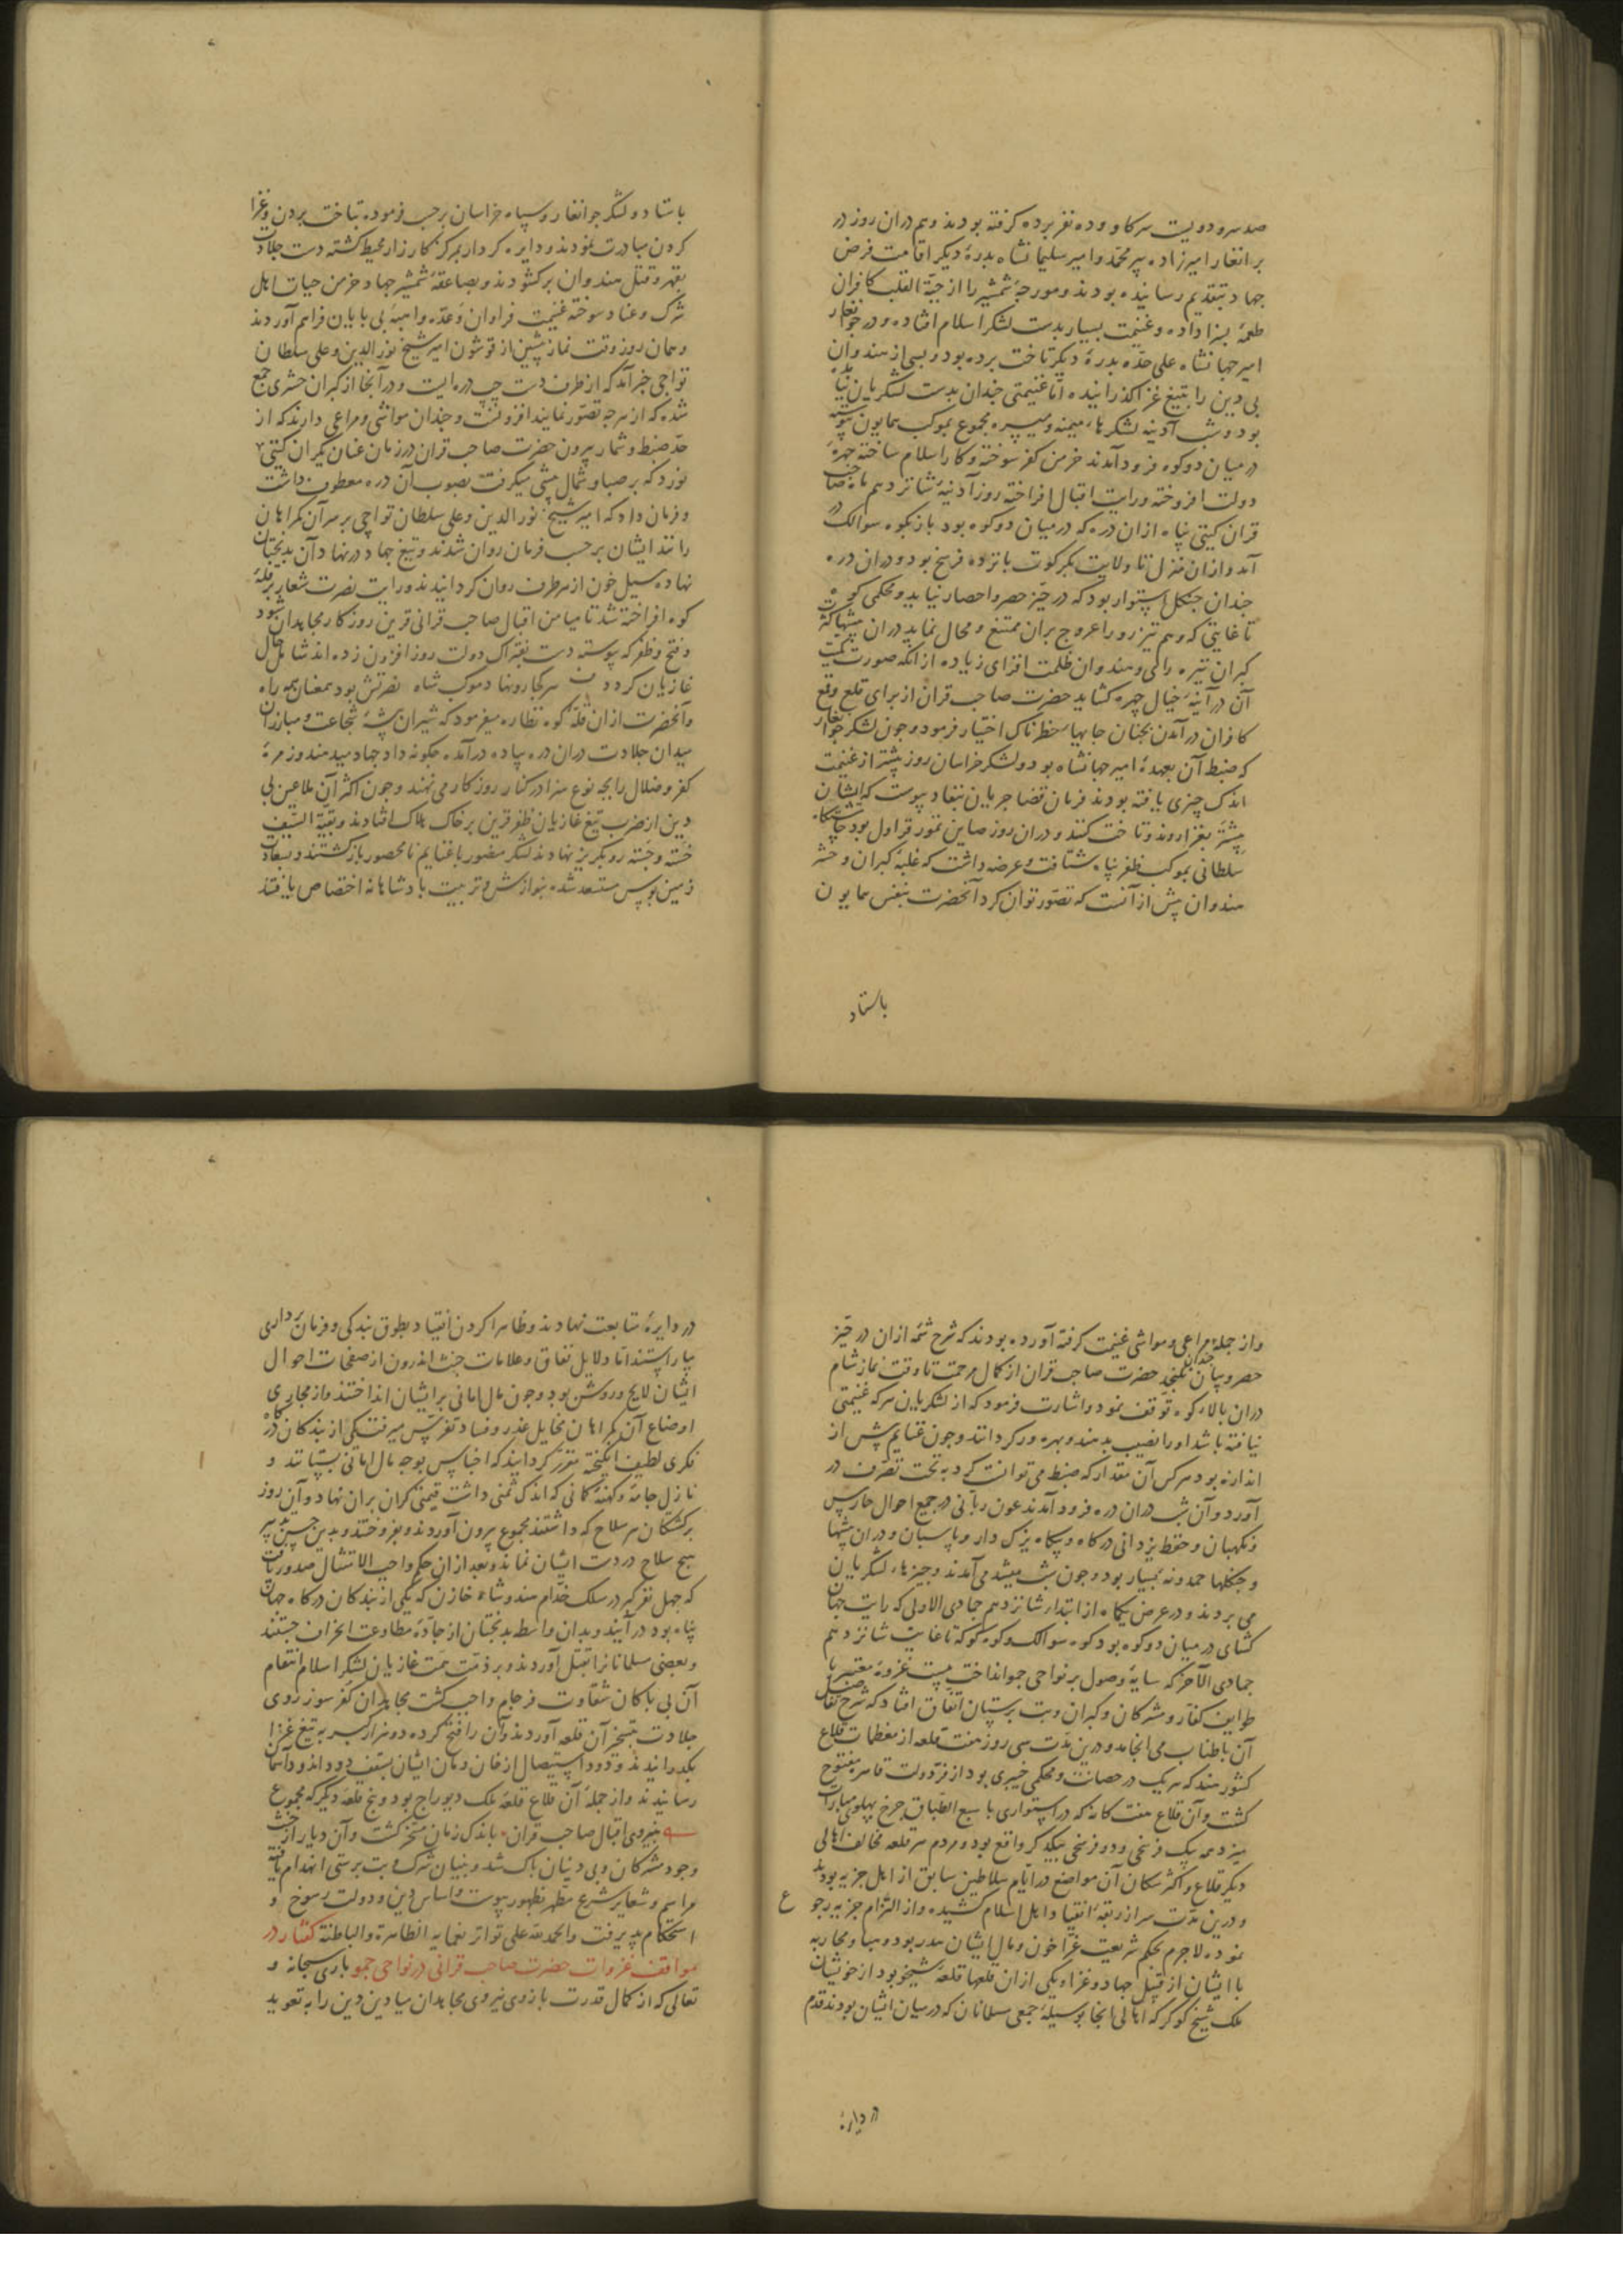 صد سر و دویست سر گاو و ده نفر برده گرفته بودند و هم در آن روز در
برانغار امیرزاده پیر محمد و امیر سلیمانشاه بدرهٔ دیگر اقامت فرض
جهاد بتقدیم رسانیده بودند و مورچهٔ شمشیر را از حبّة القلب کافران
طعمهٔ بسزا داده و غنیمت بسیار بدست لشکر اسلام افتاده و در جوانغار
امیر جهانشاه علی حدّه بدرهٔ دیگر تاخت برده بود و بسی از هندوان
بی دین را بتیغ غزا گذرانیده امّا غنیمتی چندان بدست لشکریان نیامده
بود و شب آدینه لشکرهاء میمنه و میسره مجموع بموکب همایون پیوسته
در میان دو کوه فرود آمدند خرمن کفر سوخته و کار اسلام ساخته چهرهٔ
دولت افروخته و رایت اقبال افراخته روز آدینه شانزدهم ماه صاحب
قران گیتی پناه از آن دره که در میان دو کوه بود باز بکوه سوالک در
آمد و از آن منزل تا ولایت بکرکوت پانزده فرسخ بود و در آن دره
چندان جنگل استوار بود که در حیّز حصر و احصار نیاید و محکمی کوه
تا غایتی که وهم تیزرو را عروج بر آن ممتنع و محال نماید در آن بیشها کثرت
گبران تیره رای و هندوان ظلمت افزای زیاده از آنکه صورت کمیت
آن در آینهٔ خیال چهره گشاید حضرت صاحب قران از برای قلع و قمع
کافران در آمدن بچنان جایهاء خطرناک اختیار فرمود و چون لشکر جوانغار
که ضبط آن بعهدهٔ امیر جهانشاه بود و لشکر خراسان روز پیشتر از غنیمت
اندک چیزی یافته بودند فرمان قضا جریان بنفاد پیوست که ایشان
پیشتر بغزا روند و تاخت کنند و در آن روز صاین تمور قراول بود چاشتگاه
سلطانی بموکب ظفر پناه شتافت و عرضه داشت که غلبهٔ گبران و حشر
هندوان بیش از آنست که تصوّر توان کرد آنحضرت بنفس همایون
باستاد
باستاد و لشکر جوانغار و سپاه خراسان برحسب فرموده بتاخت بردن و غزا
کردن مبادرت نمودند و دایره کردار بمرکز کارزار محیط گشته دست جلادت
بقهر و قتل هندوان برگشودند و بصاعقهٔ شمشیر جهاد خرمن حیات اهل
شرک و عناد سوخته غنیمت فراوان و عدّه و اهبهٔ بی پایان فراهم آوردند
و همان روز وقت نماز پیشین از قوشون امیر شیخ نورالدین و علی سلطان
تواچی خبر آمد که از طرف دست چپ دره ایست و در آنجا از گبران حشری جمع
شده که از هرچه تصوّر نمایند افزونست و چندان مواشی و مراعی دارند که از
حدّ ضبط و شمار بیرون حضرت صاحب قران در زمان عنان یکران گیتی
نورد که بر صبا و شمال پیشی میگرفت بصوب آن دره معطوف داشت
و فرمان داد که امیر شیخ نورالدین و علی سلطان تواچی بر سر آن گمراهان
رانند ایشان برحسب فرمان روان شدند و تیغ جهاد در نهاد آن بدبختان
نهاده سیل خون از هر طرف روان گردانیدند و رایت نصرت شعار بر قلهٔ
کوه افراخته شد تا میامن اقبال صاحب قرانی قرین روزگار مجاهدان شود
و فتح و ظفر که پیوسته دست بفتراک دولت روز افزون زده اند شامل حال
غازیان گردد هر کجا رو نهاد موکب شاه نصرتش بود همعنان همراه
و آنحضرت از آن قلّهٔ کوه نظاره میفرمود که شیران بیشهٔ شجاعت و مبارزان
میدان جلادت در آن دره پیاده در آمده چگونه داد جهاد میدهند و زمرهٔ
کفر و ضلال را بچه نوع سزا در کنار روزگار می نهند و چون اکثر آن ملاعین بی
دین از ضرب تیغ غازیان ظفر قرین بر خاک هلاک افتادند و بقیّة السّیف
خسته و جسته رو بگریز نهادند لشکر منصور با غنایم نامحصور بازگشتند و بسعادت
زمین بوس مستسعد شده بنوازش و تربیت پادشاهانه اختصاص یافتند
و از جملهٔ مراعی و مواشی غنیمت گرفته آورده بودند که شرح شمّه از آن در حیّز
حصر و بیان نگنجد حضرت صاحب قران از کمال مرحمت تا وقت نماز شام
در آن بالاء کوه توقف نمود و اشارت فرمود که از لشکریان هر که غنیمتی
نیافته باشد او را نصیب بدهند و بهره ور گردانند و چون غنایم بیش از
اندازه بود هر کس آن مقدار که ضبط می توانست کرد به تحت تصرّف در
آورد و آن شب در آن دره فرود آمدند عون ربّانی در جمیع احوال حارس
و نگهبان و حفظ یزدانی در گاه و بیگاه یزک دار و پاسبان و در آن بیشها
و جنگلها حمدونه بسیار بود و چون شب میشد می آمدند و چیزهاء لشکریان
می بردند و در عرض یکماه از ابتداء شانزدهم جمادی الاولی که رایت جهان
گشای در میان دو کوه بود کوه سوالک و کوه کوکه تا غایت شانزدهم
جمادی الآخر که سایهٔ وصول بر نواحی جمو انداخت بیست غزوهٔ معتبر با
طوایف کفّار و مشرکان و گبران و بت پرستان اتفاق افتاد که شرح تفاصیل
آن باطناب می انجامد و درین مدّت سی روز هفت قلعه از معظمات قلاع
کشور هند که هر یک در حصانت و محکمی خیبری بود از فرّ دولت قاهره مفتوح
گشت و آن قلاع هفت گانه که در استواری با سبع الطّباق چرخ پهلوی مبارات
میزدی همه یک فرسخی و دو فرسخی یکدیگر واقع بود و مردم هر قلعه مخالف اهالی
دیگر قلاع و اکثر سکان آن مواضع در ایّام سلاطین سابق از اهل جزیه بودند
و درین مدّت سر از ربقهٔ انقیاد اهل اسلام کشیده و از التزام جزیه رجوع
نموده لاجرم بحکم شریعت غرّا خون و مال ایشان هدر بود و مباح و محاربه
با ایشان از قبیل جهاد و غزا و یکی از آن قلعها قلعهٔ شیخو بود از خویشان
ملک شیخ کوکر که اهالی آنجا بوسیلهٔ جمعی مسلمانان که در میان ایشان بودند قدم
در دایرهٔ
در دایرهٔ متابعت نهادند و ظاهرا گردن انقیاد بطوق بندگی و فرمان برداری
بیاراستند امّا دلایل نفاق و علامات خبث اندرون از صفحات احوال
ایشان لایح و روشن بود و چون مال امانی بر ایشان انداختند و از مجاری
اوضاع آن گمراهان مخایل غدر و فساد تفرّس میرفت یکی از بندگان درگاه
فکری لطیف انگیخته مقرّر گردانید که اجناس بوجه مال امانی بستانند و
نازل جامهٔ و کهنه کمانی که اندک ثمنی داشت قیمتی گران بر آن نهاد و آن روز
برگشتگان هر سلاح که داشتند مجموع بیرون آوردند و بفروختند و بدین حسن تدبیر
هیچ سلاح در دست ایشان نماند و بعد از آن حکم واجب الامتثال صدور یافت
که چهل نفر گبر در سلک خدّام هندو شاه خازن که یکی از بندگان درگاه جهان
پناه بود در آیند و بدان واسطه بدبختان از جادّهٔ مطاوعت انحراف جستند
و بعضی مسلمانانرا بقتل آوردند و بر ذمّت همّت غازیان لشکر اسلام انتقام
آن بی باکان شقاوت فرجام واجب گشت مجاهدان کفر سوز روی
جلادت بتسخیر آن قلعه آوردند و آن را فتح کرده دو هزار گبر به تیغ غزا
بگذرانیدند و دود استیصال از خان و مان ایشان بسقف دود اندود آسمان
رسانیدند و از جملهٔ آن قلاع قلعهٔ ملک دیوراج بود و پنج قلعهٔ دیگر که مجموع
بنیروی اقبال صاحب قران باندک زمان مسخّر گشت و آن دیار از خبث
وجود مشرکان و بی دینان پاک شد و بنیان شرک و بت پرستی انهدام یافته
مراسم و شعایر شرع مطهّر بظهور پیوست و اساس دین و دولت رسوخ و
استحکام پذیرفت والحمد لله علی تواتر نعمایه الظاهرة والباطنة گفتار در
مواقف غزوات حضرت صاحب قرانی در نواحی جمو باری سبحانه و
تعالی که از کمال قدرت بازوی نیروی مجاهدان میادین دین را به تعوید